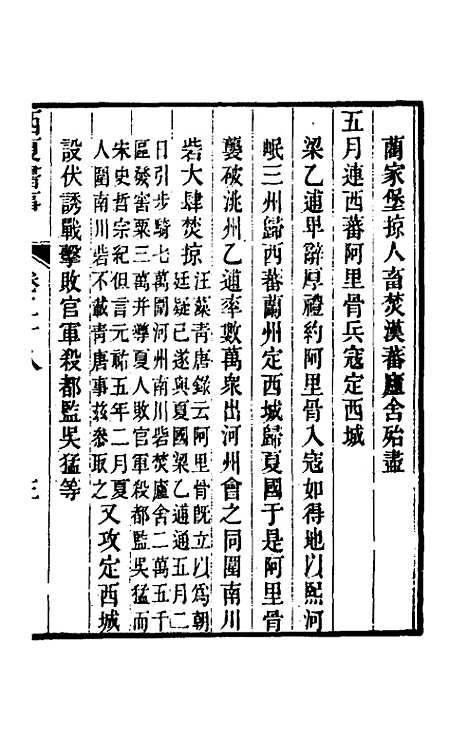 藺家堡掠人畜焚漢蕃廬舍殆盡
五月連西蕃阿里骨兵寇定西城
梁乙逋卑辭厚禮約阿里骨入寇如得地以熙河
岷三州歸西蕃蘭州定西城歸夏國于是阿里骨
襲破洮州乙逋率數萬衆出河州會之同圍南川
砦大肆焚掠
汪藻青唐錄云阿里骨旣立以爲朝
廷疑己遂與夏國梁乙逋通五月二
日引步騎七萬圍河州南川砦焚廬舍二萬五千
區發窖粟三萬并導夏人敗官軍殺都監吳猛而
宋史哲宗紀但言元祐五年二月夏
人圍南川砦不載青唐事茲叅取之
又攻定西城
設伏誘戰擊敗官軍殺都監吳猛等
西夏書事
卷二十八